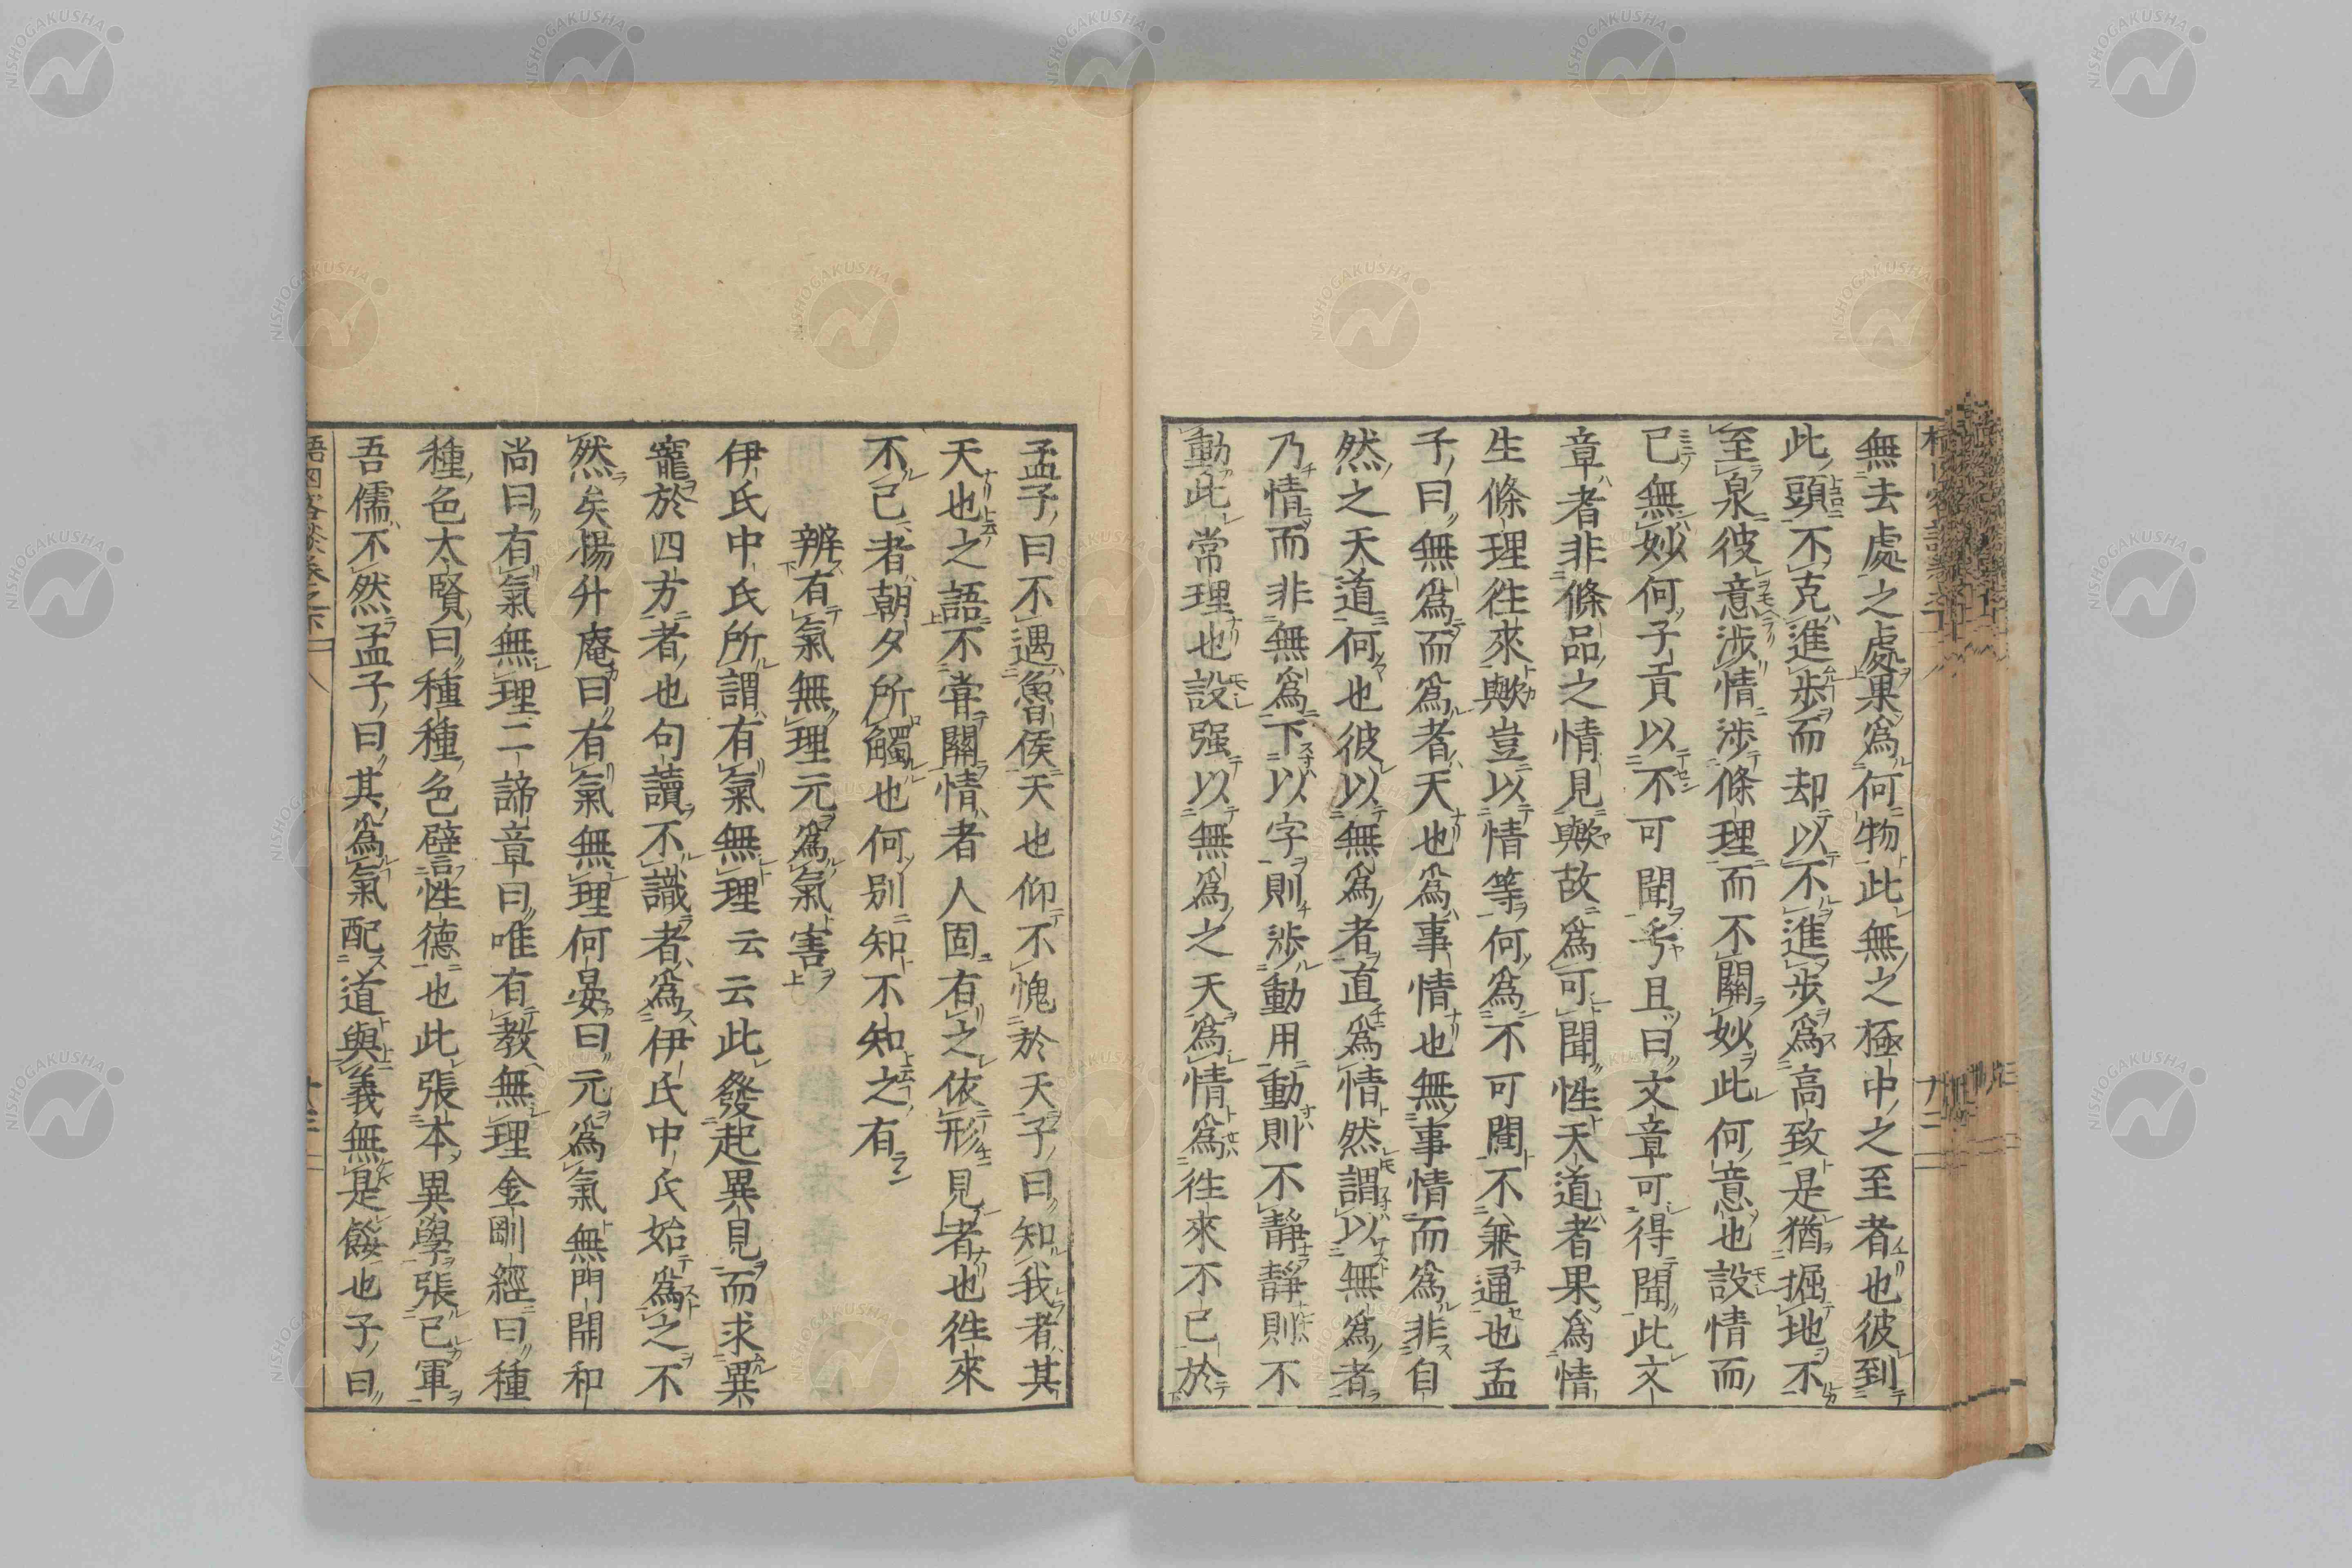 無去處之處果爲何物此無之極中之至者也彼到
此頭不克進歩而却以不進歩爲高致是猶掘地不
至泉彼意渉情渉條理而不關妙此何意也設情而
已無妙何子貢以不可聞乎且曰文章可得聞此文
章者非條品之情見歟故爲可聞性天道者果爲情
生條理徃來歟豈以情等何爲不可聞不兼通也孟
子曰無爲而爲者天也爲事情也無事情而爲非自
然之天道何也彼以無爲者直爲情然謂以無爲者
乃情而非無爲下以字則渉動用動則不靜靜則不
動此常理也設强以無爲之天爲情爲徃來不已於
孟子曰不遇魯侯天也仰不愧於天子曰知我者其
天也之語不嘗關情者人固有之依形見者也徃來
不已者朝夕所觸也何別知不知之有
辨有氣無理元爲氣害
伊氏中氏所謂有氣無理云云此發起異見而求異
寵於四方者也句讀不識者爲伊氏中氏始爲之不
然矣楊升庵曰有氣無理何晏曰元爲氣無門開和
尚曰有氣無理二諦章曰唯有教無理金剛經曰種
種色太賢曰種種色譬性德也此張本異學張已軍
吾儒不然孟子曰其爲氣配道與義無是餒也子曰